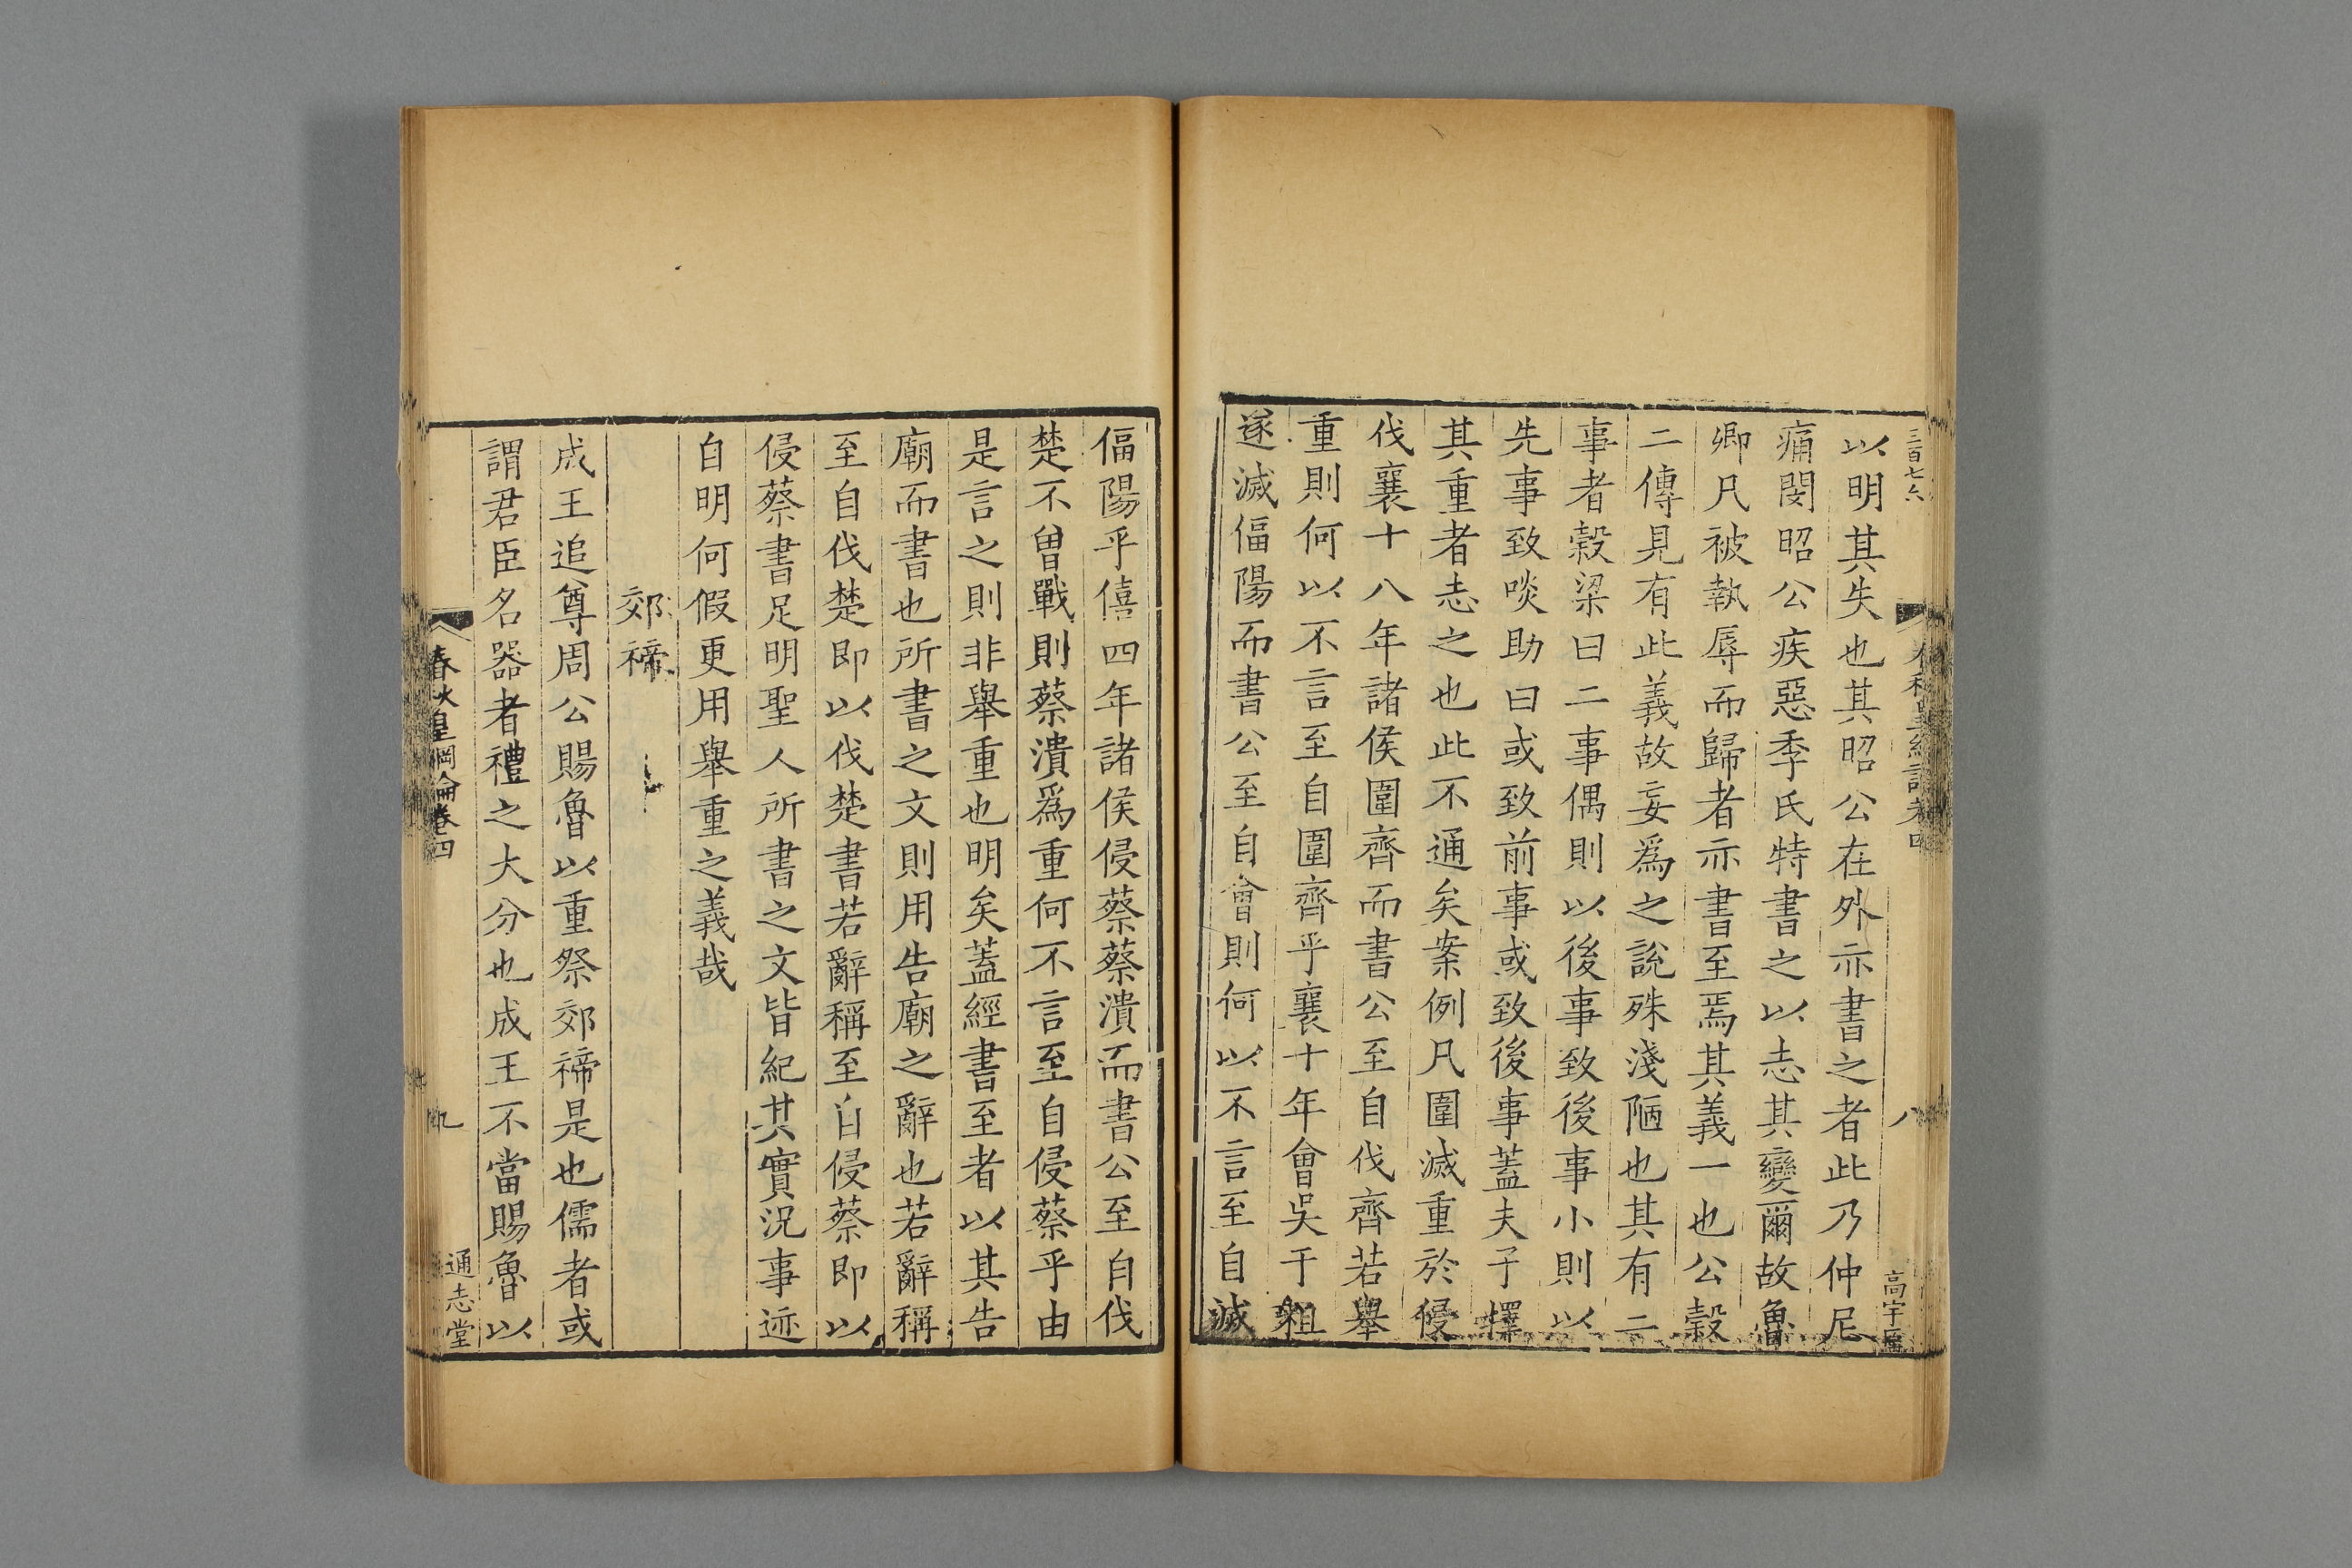 三百七六
八
以明其失也其昭公在外亦書之者此乃仲尼
痛閔昭公疾惡季氏特書之以志其變爾故魯
卿凡被執辱而歸者亦書至焉其義一也公穀
二傳見有此義故妄爲之說殊淺陋也其有二
事者穀梁曰二事偶則以後事致後事小則以
先事致啖助曰或致前事或致後事蓋夫子擇
其重者志之也此不通矣案例凡圍滅重於侵
伐襄十八年諸侯圍齊而書公至自伐齊若舉
重則何以不言至自圍齊乎襄十年會吳于柤
遂滅偪陽而書公至自會則何以不言至自滅
偪陽乎僖四年諸侯侵蔡蔡潰而書公至自伐
楚不曾戰則蔡潰爲重何不言至自侵蔡乎由
是言之則非舉重也明矣蓋經書至者以其告
廟而書也所書之文則用告廟之辭也若辭稱
至自伐楚即以伐楚書若辭稱至自侵蔡即以
侵蔡書足明聖人所書之文皆紀其實況事迹
自明何假更用舉重之義哉
郊禘
成王追尊周公賜魯以重祭郊禘是也儒者或
謂君臣名器者禮之大分也成王不當賜魯以
春秋皇綱論卷四
九
通志堂